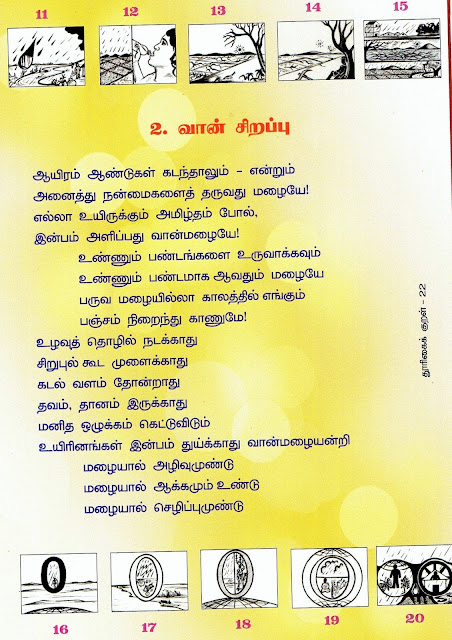 11 12 13 14 15
2. வான் சிறப்பு
ஆயிரம் ஆண்டுகள் கடந்தாலும் - என்றும்
அனைத்து நன்மைகளைத் தருவது மழையே!
எல்லா உயிருக்கும் அமிழ்தம் போல்,
இன்பம் அளிப்பது வான்மழையே!
உண்ணும் பண்டங்களை உருவாக்கவும்
உண்ணும் பண்டமாக ஆவதும் மழையே
பருவ மழையில்லா காலத்தில் எங்கும்
பஞ்சம் நிறைந்து காணுமே!
உழவுத் தொழில் நடக்காது
சிறுபுல் கூட முளைக்காது
கடல் வளம் தோன்றாது
தவம், தானம் இருக்காது
மனித ஒழுக்கம் கெட்டுவிடும்
உயிரினங்கள் இன்பம் துய்க்காது வான்மழையன்றி
மழையால் அழிவுமுண்டு
மழையால் ஆக்கமும் உண்டு
மழையால் செழிப்புமுண்டு
தூரிகைக் குறள் - 22
16 17 18 19 20